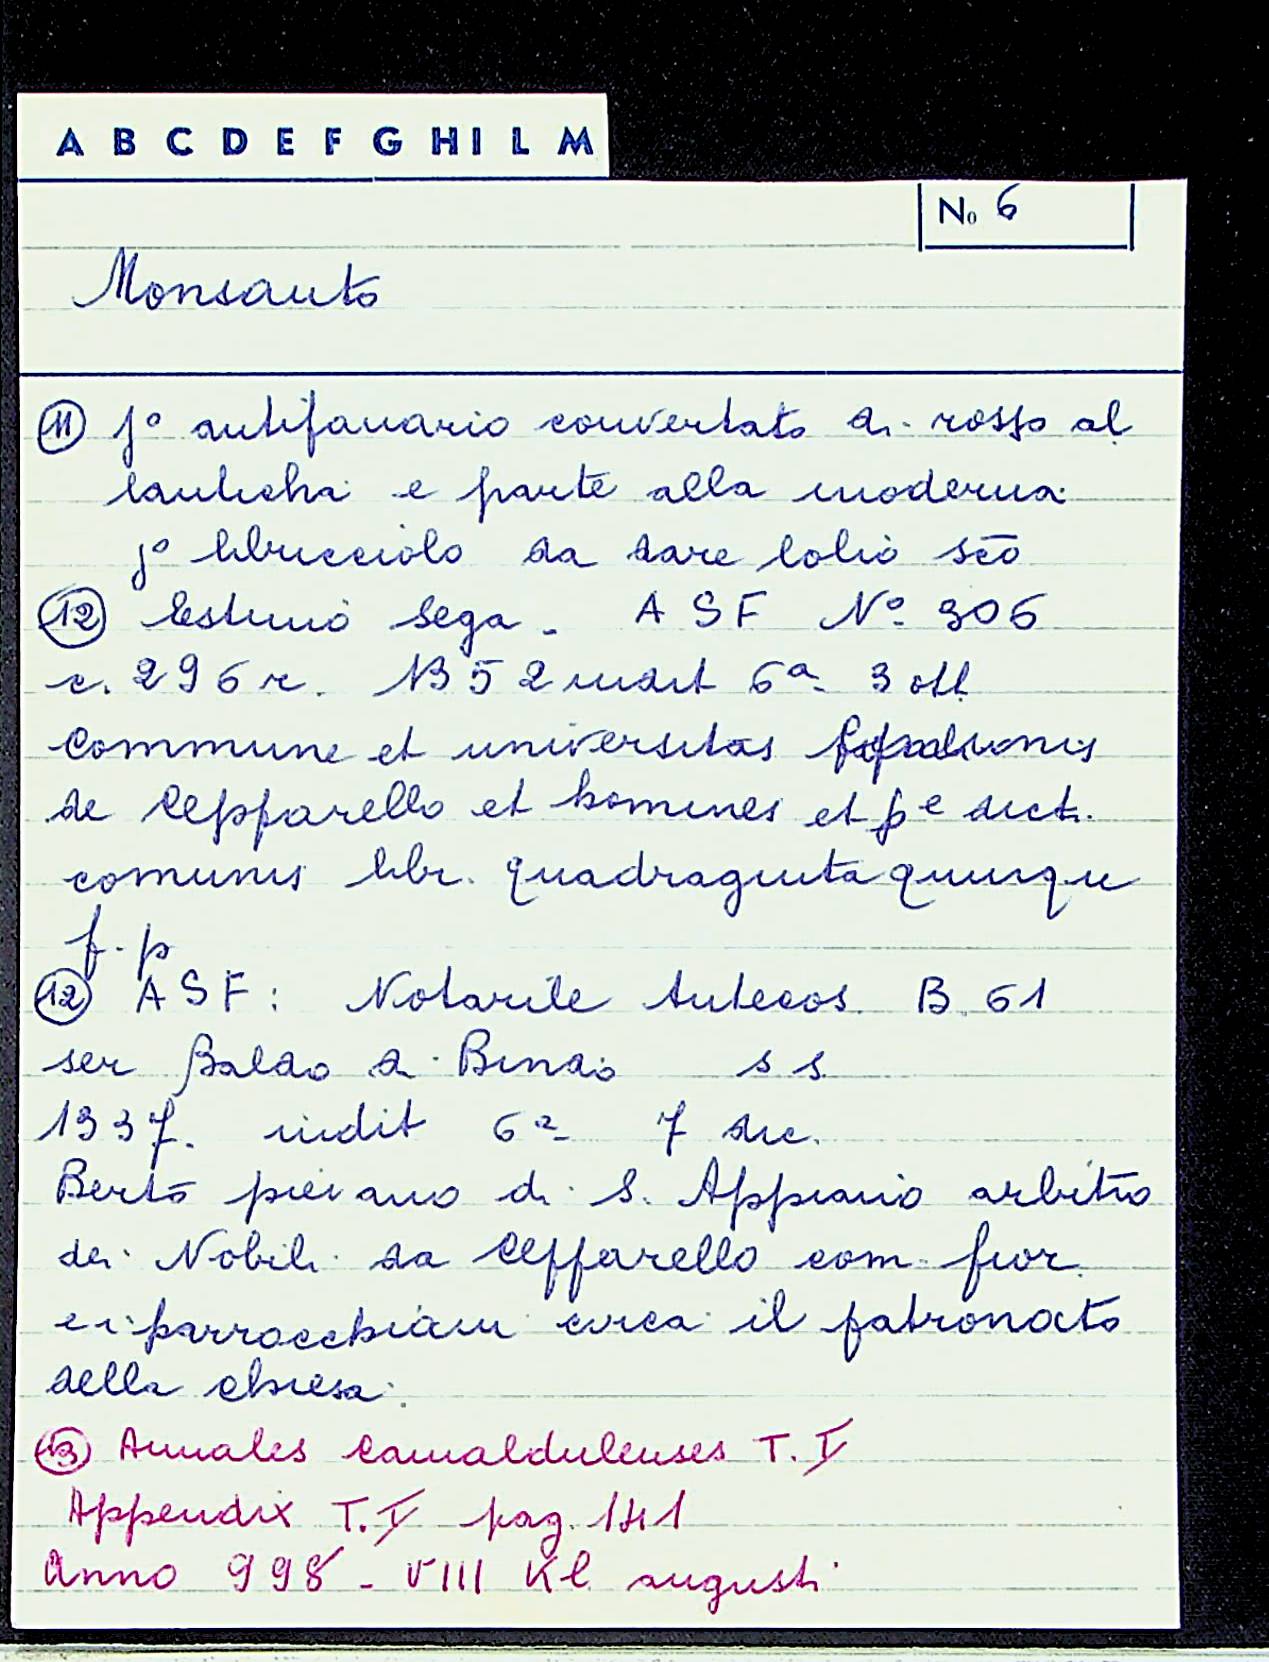 A B C D E F G H I L M
No 6
Monsanto
11 jº antifanario convertato di rosso al
lanticha e parte alla moderna
jº libricciolo da dare lolio sco
12 Estimo Sega. A S F Nº 306
c. 296 r. 1352 indit 6ª 3 ott
Commune et universitas
de Cepparello et homines et pe dict.
comunis libr. quadraginta quinque
f. p
12 A S F: Notarile Antecos. B. 61
ser Baldo di Bindo s s
1337. indit 6ª 7 dic.
Berto pievano di S. Appiano arbitro
dei Nobili da Cepparello com fior.
e i parrocchiani circa il patronato
della chiesa.
13 Annales Camaldulenses T. I
Appendix T. I pag. 141
Anno 998 - VIII Kl augusti